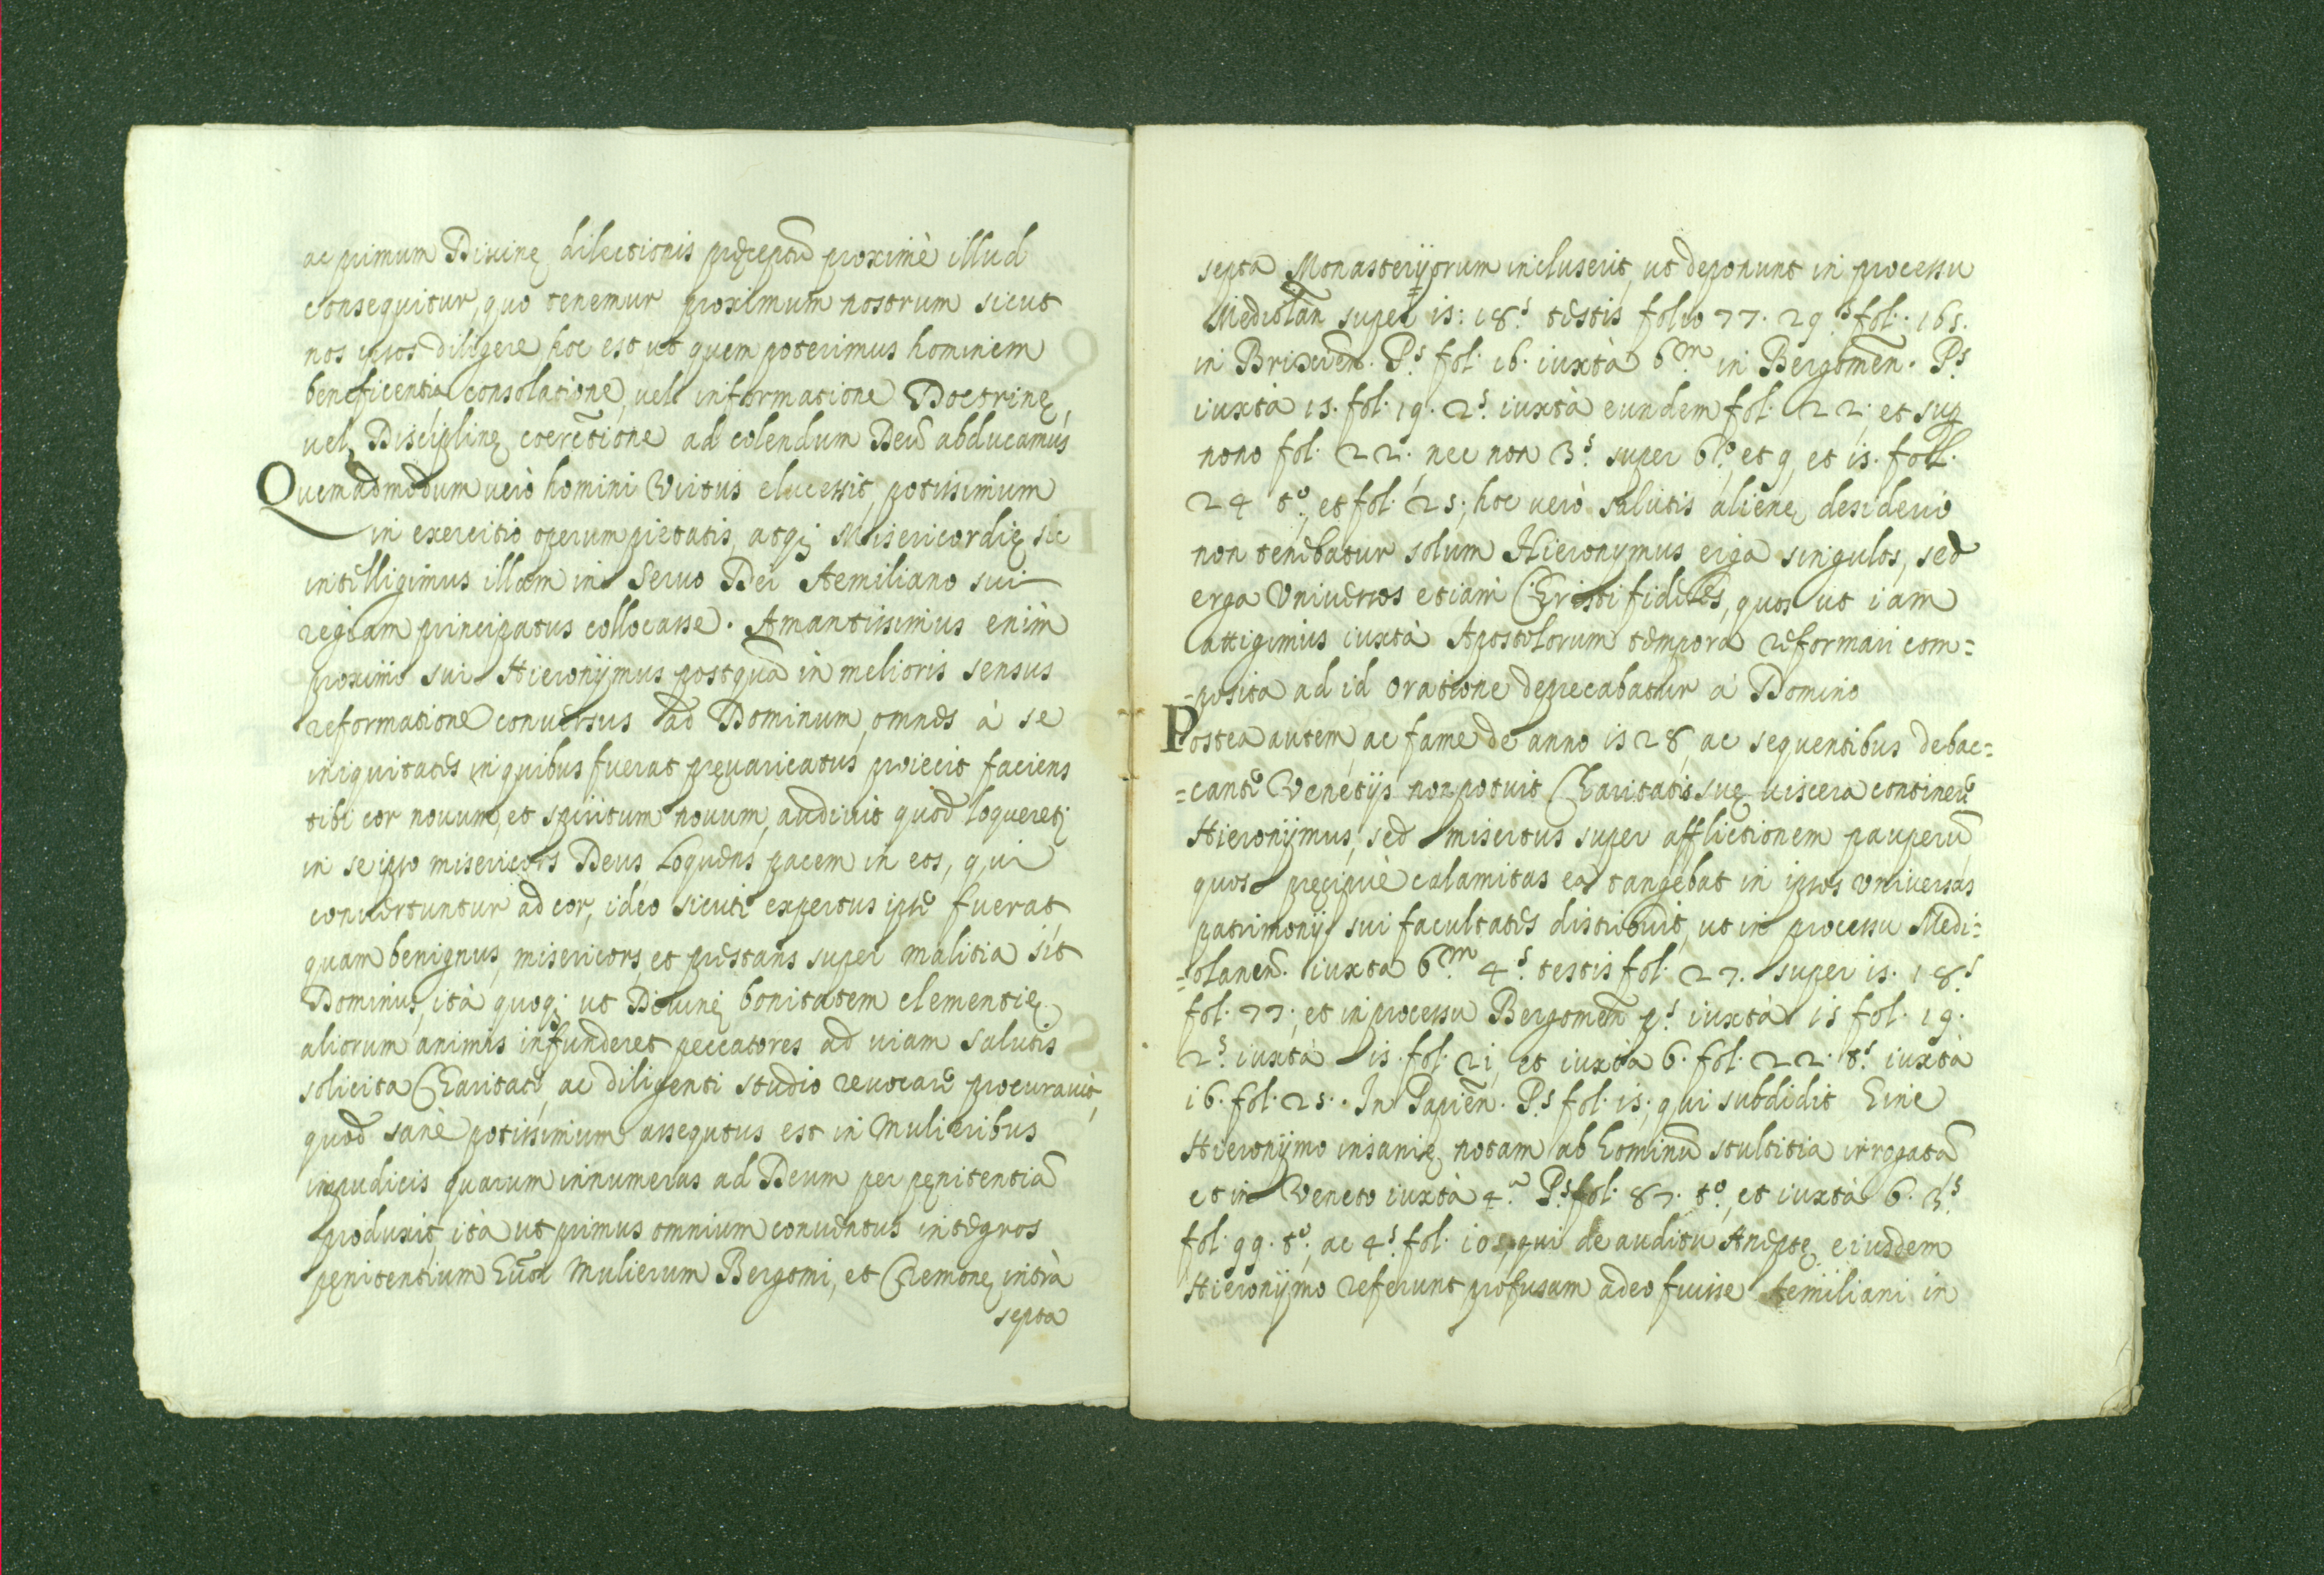 ac primum Diuinę dilectionis pręceptũ proximè illud
consequitur, quo tenemur proximum nostrum sicut
nos ipsos diligere, hoc est ut quem poterimus hominem
beneficentia consolatione, uel informatione Doctrinę,
uel Disciplinę coerctione ad colendum Deũ abducamus
Quemadmodum uerò homini Virtus elucessit, potissimum
in exercitio operum pietatis, atq; Misericordię sic
intelligimus illam in Seruo Dei Aemiliano sui
regiam principatus collocasse. Amantissimus enim
proximi sui Hieronijmus postquã in melioris sensus
reformatione conuersus ad Dominum, omnes à se
iniquitates, in quibus fuerat pręuaricatus proiecit faciens
tibi cor nouum, et spiritum nouum, audiuit quod loqueret;
in se ipso misericors Deus Loquens pacem in eos, qui
conuertuntur ad cor, ideo sicuti expertus ipse fuerat
quam benignus, misericors, et pręstans super malitia sit
Dominus, ità quoq; ut Diuinę bonitatem clementię
aliorum animis infunderet peccatores ad uiam salutis
solicita Charitate, ac diligenti studio reuocare procurauit,
quod sanè potissimum assequtus est in Mulieribus
impudicis quarum innumeras ad Deum per pęnitentiã
produxit, ità ut primus omnium conuentus integros
pęnitentium Mulierum Bergomi, et Cremonę intrà
septa
septa Monasterijorum incluserit, ut deponunt in processu
Mediolañ super is: 18.s testis folio 77. 29.s fol. 165.
in Brixieñ. P.s fol. 16. iuxtà 6.m in Bergomeñ. P.s
iuxtà 15. fol. 19. 2.s iuxtà eundem fol. 22; et sup
nono fol. 22. nec non 3.s super 6.o, et 9, et is. foll.
24 t.o, et fol. 25; hoc uerò salutis alienę desiderio
non tenebatur solum Hieronymus erga singulos, sed
erga Vniuersos etiam Christi fideles, quos ut iam
attigimus iuxtà Apostolorum tempora reformari com=
=posita ad id oratione deprecabatur à Domino
Postea autem, ac fame de anno 1528, ac sequentibus debac=
=cante Venetijs non potuit Charitatis suę uiscera continere
Hieronijmus, sed misertus super afflictionem pauperũ
quos pręcipuè calamitas ea tangebat in ipsos Vniuersas
patrimonij sui facultates distribuit, ut in processu Medi=
=olaneñ. iuxta 6.m 4.s testis fol. 27. super is. 18.s
fol. 77; et in processu Bergomeñ p.s iuxtà is fol. 19.
2.s iuxtà is. fol. 21, et iuxtà 6. fol. 22. t.s iuxtà
16. fol. 25. In Papieñ. P.s fol. is; qui subdidit hinc
Hieronijmo insanię notam ab hominũ stultitia irrogatã
et in Veneto iuxtà 4.a P.s fol. 87. t.o, et iuxtà 6. 3.s
fol. 99. t.o, ac 4.s fol. 105, qui de auditu Aneptę eiusdem
Hieronijmo referunt profusam adeo fuisse Aemiliani in